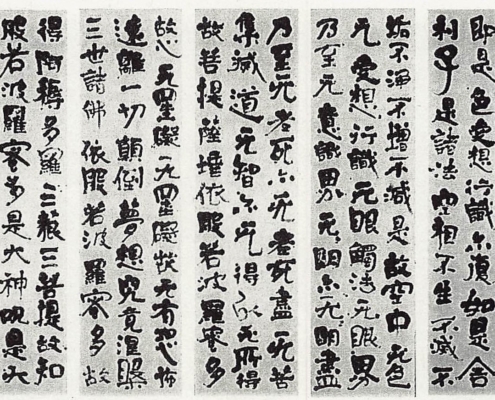 即是色受想行識亦復如是舍
利子是諸法空相不生不滅不
垢不淨不增不減是故空中无色
无受想行識无眼觸法无眼界
乃至无意識界无〻明亦无〻明盡
乃至无老死亦无老死盡无苦
集滅道无智亦无得以无所得
故菩提薩埵依般若波羅蜜多
故心无罣礙无罣礙故无有恐怖
遠離一切顛倒夢想究竟涅槃
三世諸佛依般若波羅蜜多故
得阿耨多羅三藐三菩提故知
般若波羅蜜多是大神呪是大